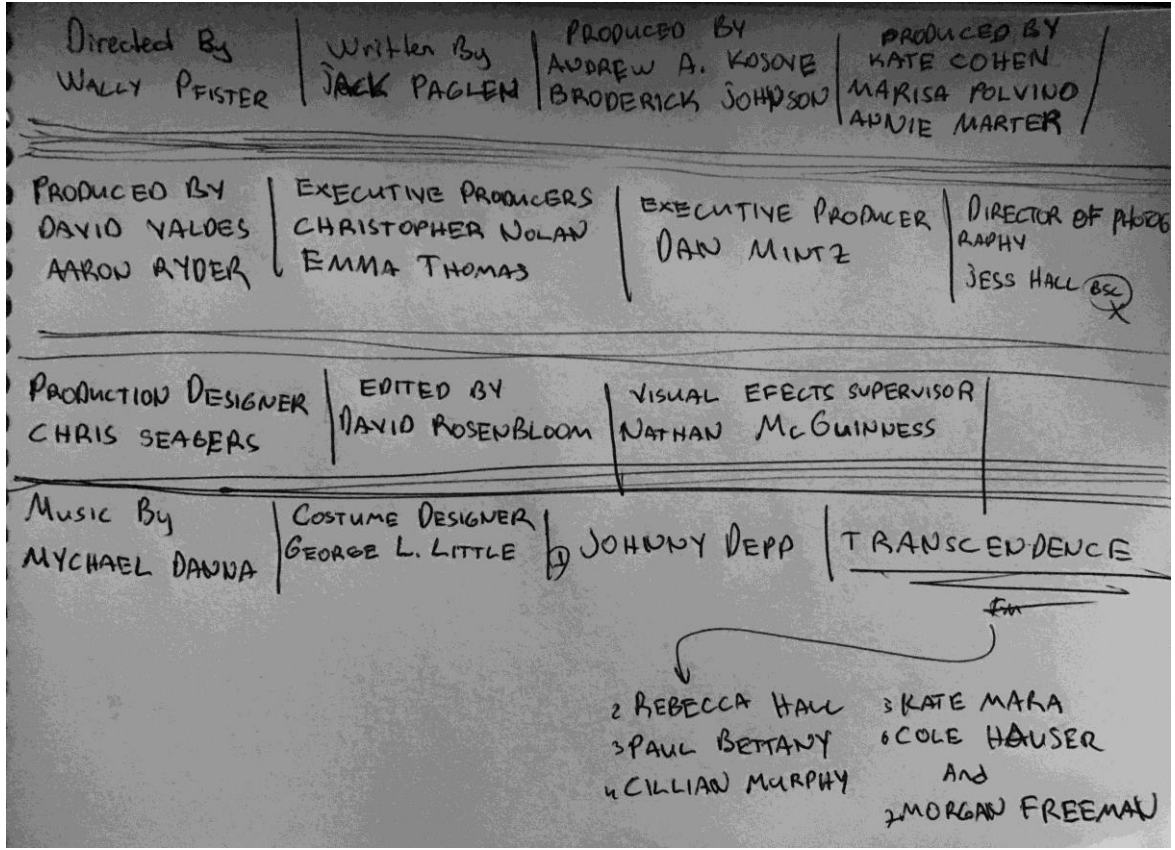 Directed By
WALLY PFISTER
Written By
JACK PAGLEN
PRODUCED BY
ANDREW A. KOSOVE
BRODERICK JOHNSON
PRODUCED BY
KATE COHEN
MARISA POLVINO
ANNIE MARTER
PRODUCED BY
DAVID VALDES
AARON RYDER
EXECUTIVE PRODUCERS
CHRISTOPHER NOLAN
EMMA THOMAS
EXECUTIVE PRODUCER
DAN MINTZ
DIRECTOR OF PHOTOG
RAPHY
JESS HALL BSC
X
PRODUCTION DESIGNER
CHRIS SEAGERS
EDITED BY
DAVID ROSENBLOOM
VISUAL EFECTS SUPERVISOR
NATHAN McGUINNESS
Music By
MYCHAEL DANNA
COSTUME DESIGNER
GEORGE L. LITTLE
1 JOHNNY DEPP
TRANSCENDENCE
2 REBECCA HALL
3 PAUL BETTANY
4 CILLIAN MURPHY
3 KATE MARA
6 COLE HAUSER
And
7 MORGAN FREEMAN